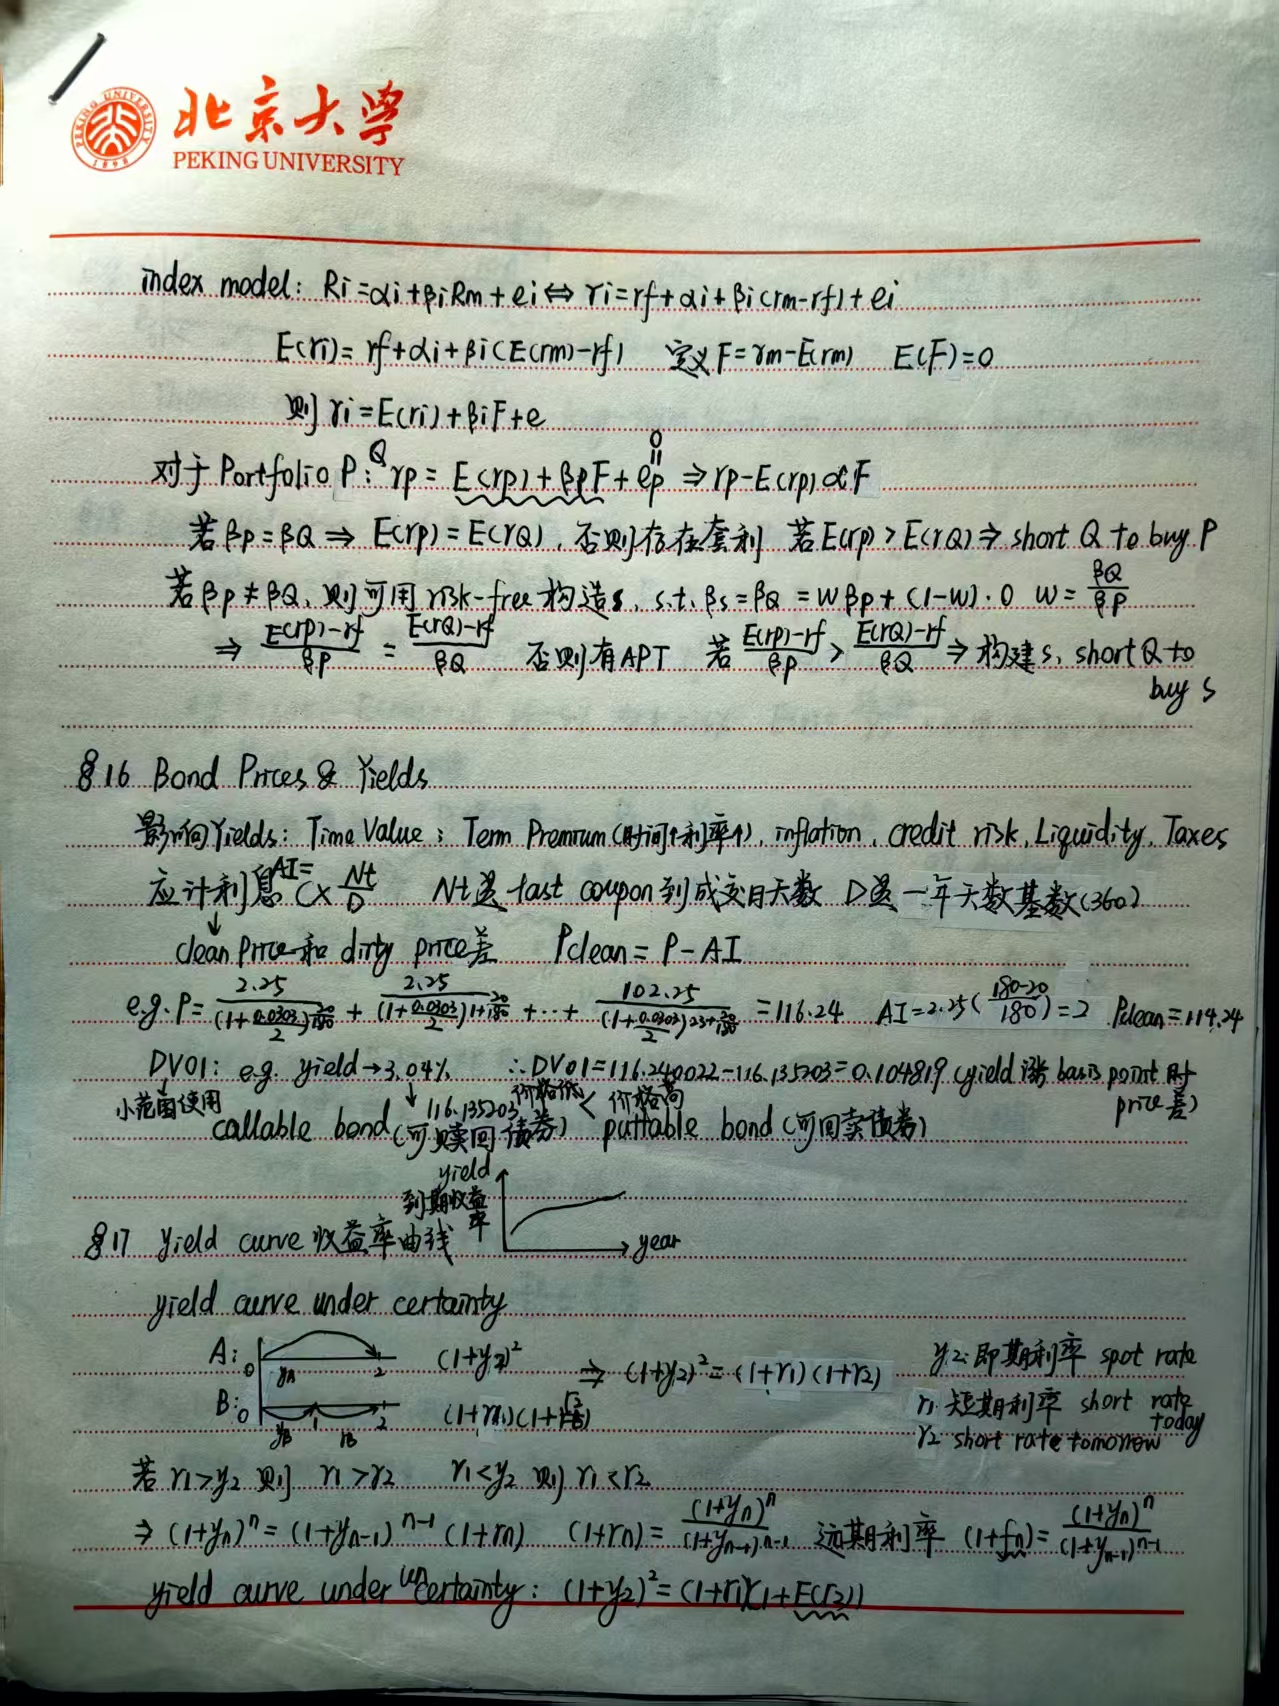 北京大学
PEKING UNIVERSITY
PEKING UNIVERSITY
1898
index model: Ri=αi+βiRm+ei⇔ri=rf+αi+βi(rm-rf)+ei
E(ri)=rf+αi+βi(E(rm)-rf) 定义F=rm-E(rm) E(F)=0
则ri=E(ri)+βiF+e
对于Portfolio P:Q rp=E(rp)+βpF+ep=0 ⇒rp-E(rp)∝F
若βp=βQ⇒E(rp)=E(rQ),否则存在套利 若E(rp)>E(rQ)⇒short Q to buy P
若βp≠βQ,则可用risk-free构造s, s.t. βs=βQ=wβp+(1-w)·0 w=βQ/βp
⇒ (E(rp)-rf)/βp=(E(rQ)-rf)/βQ 否则有APT 若(E(rp)-rf)/βp>(E(rQ)-rf)/βQ⇒构建s, short Q to
buy s
§16 Bond Prices & Yields
影响Yields: Time Value; Term Premium(时间↑利率↑), inflation, credit risk, Liquidity, Taxes
应计利息AI=C×Nt/D Nt是last coupon到成交日天数 D是一年天数基数(360)
↓
clean price和dirty price差 Pclean=P-AI
e.g. P=2.25/(1+0.0303/2)^(20/180)+2.25/(1+0.0303/2)^(1+20/180)+…+102.25/(1+0.0303/2)^(23+20/180)=116.24 AI=2.25((180-20)/180)=2 Pclean=114.24
DV01: e.g. yield→3.04% ∴DV01=116.240022-116.135203=0.104819 (yield涨basis point时
price差)
小范围使用 ↓116.135203 价格低<价格高
callable bond(可赎回债券) puttable bond(可回卖债券)
yield
到期收益率
year
§17 yield curve收益率曲线
yield curve under certainty
A: 0 yA 2 (1+y2)² ⇒(1+y2)²=(1+r1)(1+r2) y2:即期利率 spot rate
B: 0 yB 1 rB 2 (1+r1)(1+r2) r1短期利率 short rate today
r2 short rate tomorrow
若r1>y2则 r1>r2 r1<y2则r1<r2
⇒(1+yn)^n=(1+yn-1)^(n-1)(1+rn) (1+rn)=(1+yn)^n/(1+yn-1)^(n-1) 远期利率(1+fn)=(1+yn)^n/(1+yn-1)^(n-1)
yield curve under uncertainty: (1+y2)²=(1+r1)(1+E(r2))